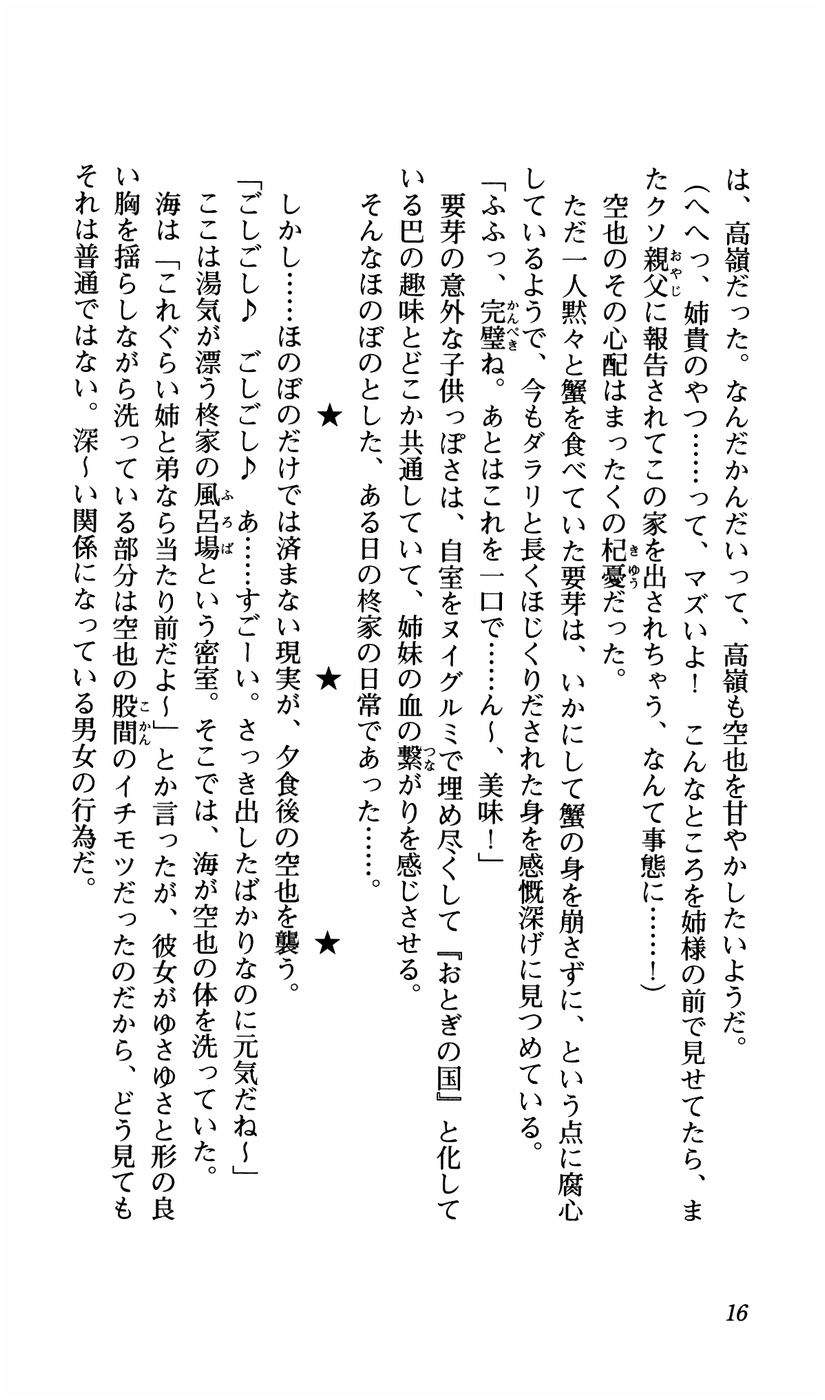 は、高嶺だった。なんだかんだいって、高嶺も空也を甘やかしたいようだ。
（へへっ、姉貴のやつ……って、マズいよ！　こんなところを姉様の前で見せてたら、ま
たクソ親父に報告されてこの家を出されちゃう、なんて事態に……！）
空也のその心配はまったくの杞憂だった。
ただ一人黙々と蟹を食べていた要芽は、いかにして蟹の身を崩さずに、という点に腐心
しているようで、今もダラリと長くほじくりだされた身を感慨深げに見つめている。
「ふふっ、完璧ね。あとはこれを一口で……ん～、美味！」
要芽の意外な子供っぽさは、自室をヌイグルミで埋め尽くして『おとぎの国』と化して
いる巴の趣味とどこか共通していて、姉妹の血の繋がりを感じさせる。
そんなほのぼのとした、ある日の柊家の日常であった……。
★　★　★
しかし……ほのぼのだけでは済まない現実が、夕食後の空也を襲う。
「ごしごし♪　ごしごし♪　あ……すごーい。さっき出したばかりなのに元気だね～」
ここは湯気が漂う柊家の風呂場という密室。そこでは、海が空也の体を洗っていた。
海は「これぐらい姉と弟なら当たり前だよ～」とか言ったが、彼女がゆさゆさと形の良
い胸を揺らしながら洗っている部分は空也の股間のイチモツだったのだから、どう見ても
それは普通ではない。深～い関係になっている男女の行為だ。
16